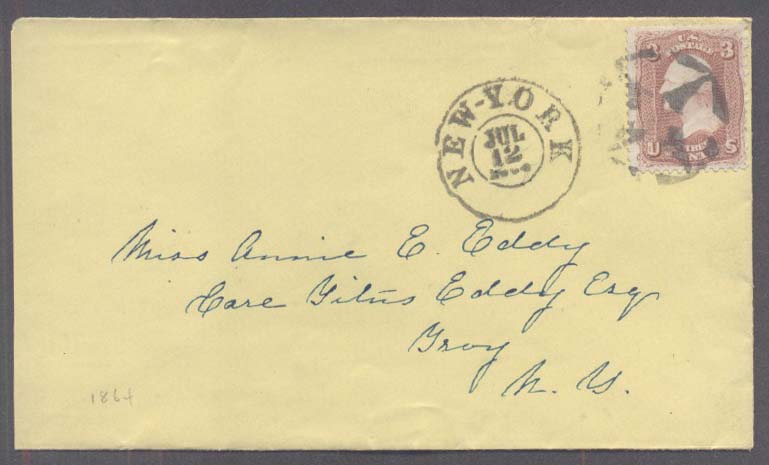 3 U.S. 3
POSTAGE
NEW-YORK
JUL
12
U S
Miss Annie E. Eddy
Care Titus Eddy Esq
Troy
N. Y.
1864